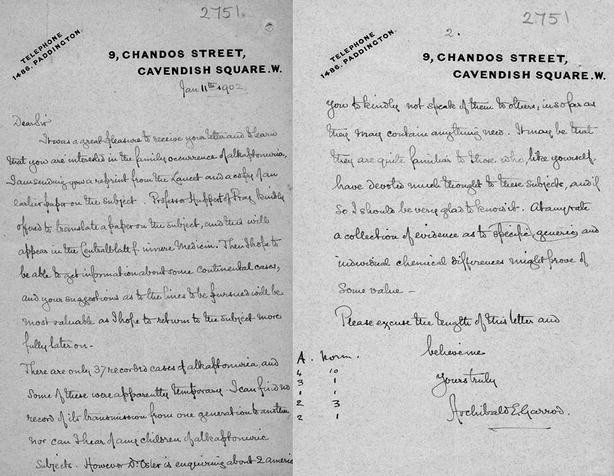 2751.
TELEPHONE
1486. PADDINGTON.
9, CHANDOS STREET,
CAVENDISH SQUARE. W.
Jan 11th 1902
Dear Sir
It was a great pleasure to receive your letter and to learn
that you are interested in the family occurrence of alkaptonuria,
I am sending you a reprint from the Lancet and a copy of an
earlier paper on the subject. Professor Huppert of Prag, kindly
offered to translate a paper on the subject, and this will
appear in the Centralblatt f. innere Medicin. Then I hope to
be able to get information about some continental cases,
and your suggestions as to the lines to be pursued will be
most valuable as I hope to return to the subject more
fully later on.
There are only 37 recorded cases of alkaptonuria, and
some of these were apparently temporary. I can find no
record of its transmission from one generation to another
nor can I hear of any children of alkaptonuric
subjects. However Dr. Osler is enquiring about 2 americ
2.
2751
TELEPHONE
1486. PADDINGTON.
9, CHANDOS STREET,
CAVENDISH SQUARE. W.
you to kindly not speak of them to others, in so far as
they may contain anything new. It may be that
they are quite familiar to those who, like yourself
have devoted much thought to these subjects, and if
so I should be very glad to know it. At any rate
a collection of evidence as to specific, generic, and
individual chemical differences might prove of
some value –
Please excuse the length of this letter and
believe me
Yours truly
Archibald E. Garrod.
A. Norm.
4 10
3 1
1 1
2 3
2 1